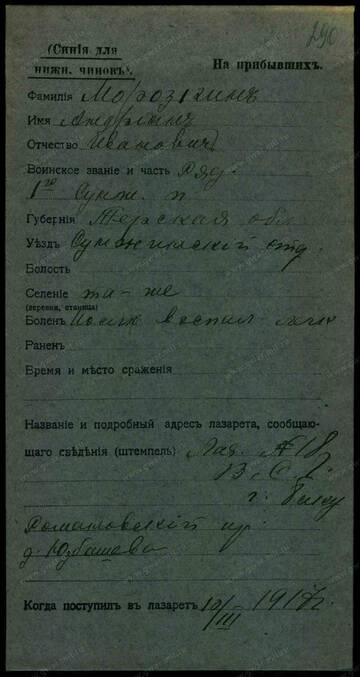 290
(Синія для
нижн. чиновъ).
На прибывшихъ.
Фамилія Морозкинъ
Имя
Отчество Ивановичъ
Воинское званіе и часть Ряд.
1го Сунж. п
Губернія Терская обл
Уѣздъ Сунженскій отд.
Волость
Селеніе та-же
(деревня, станица)
Боленъ воспал
Раненъ
Время и мѣсто сраженія
Названіе и подробный адресъ лазарета, сообщаю-
щаго свѣдѣнія (штемпель) Лаз. №18
В. С. Г.
г. Баку
Романовскій пр.
д. Юзбашева
Когда поступилъ въ лазаретъ 10/III 1917г.